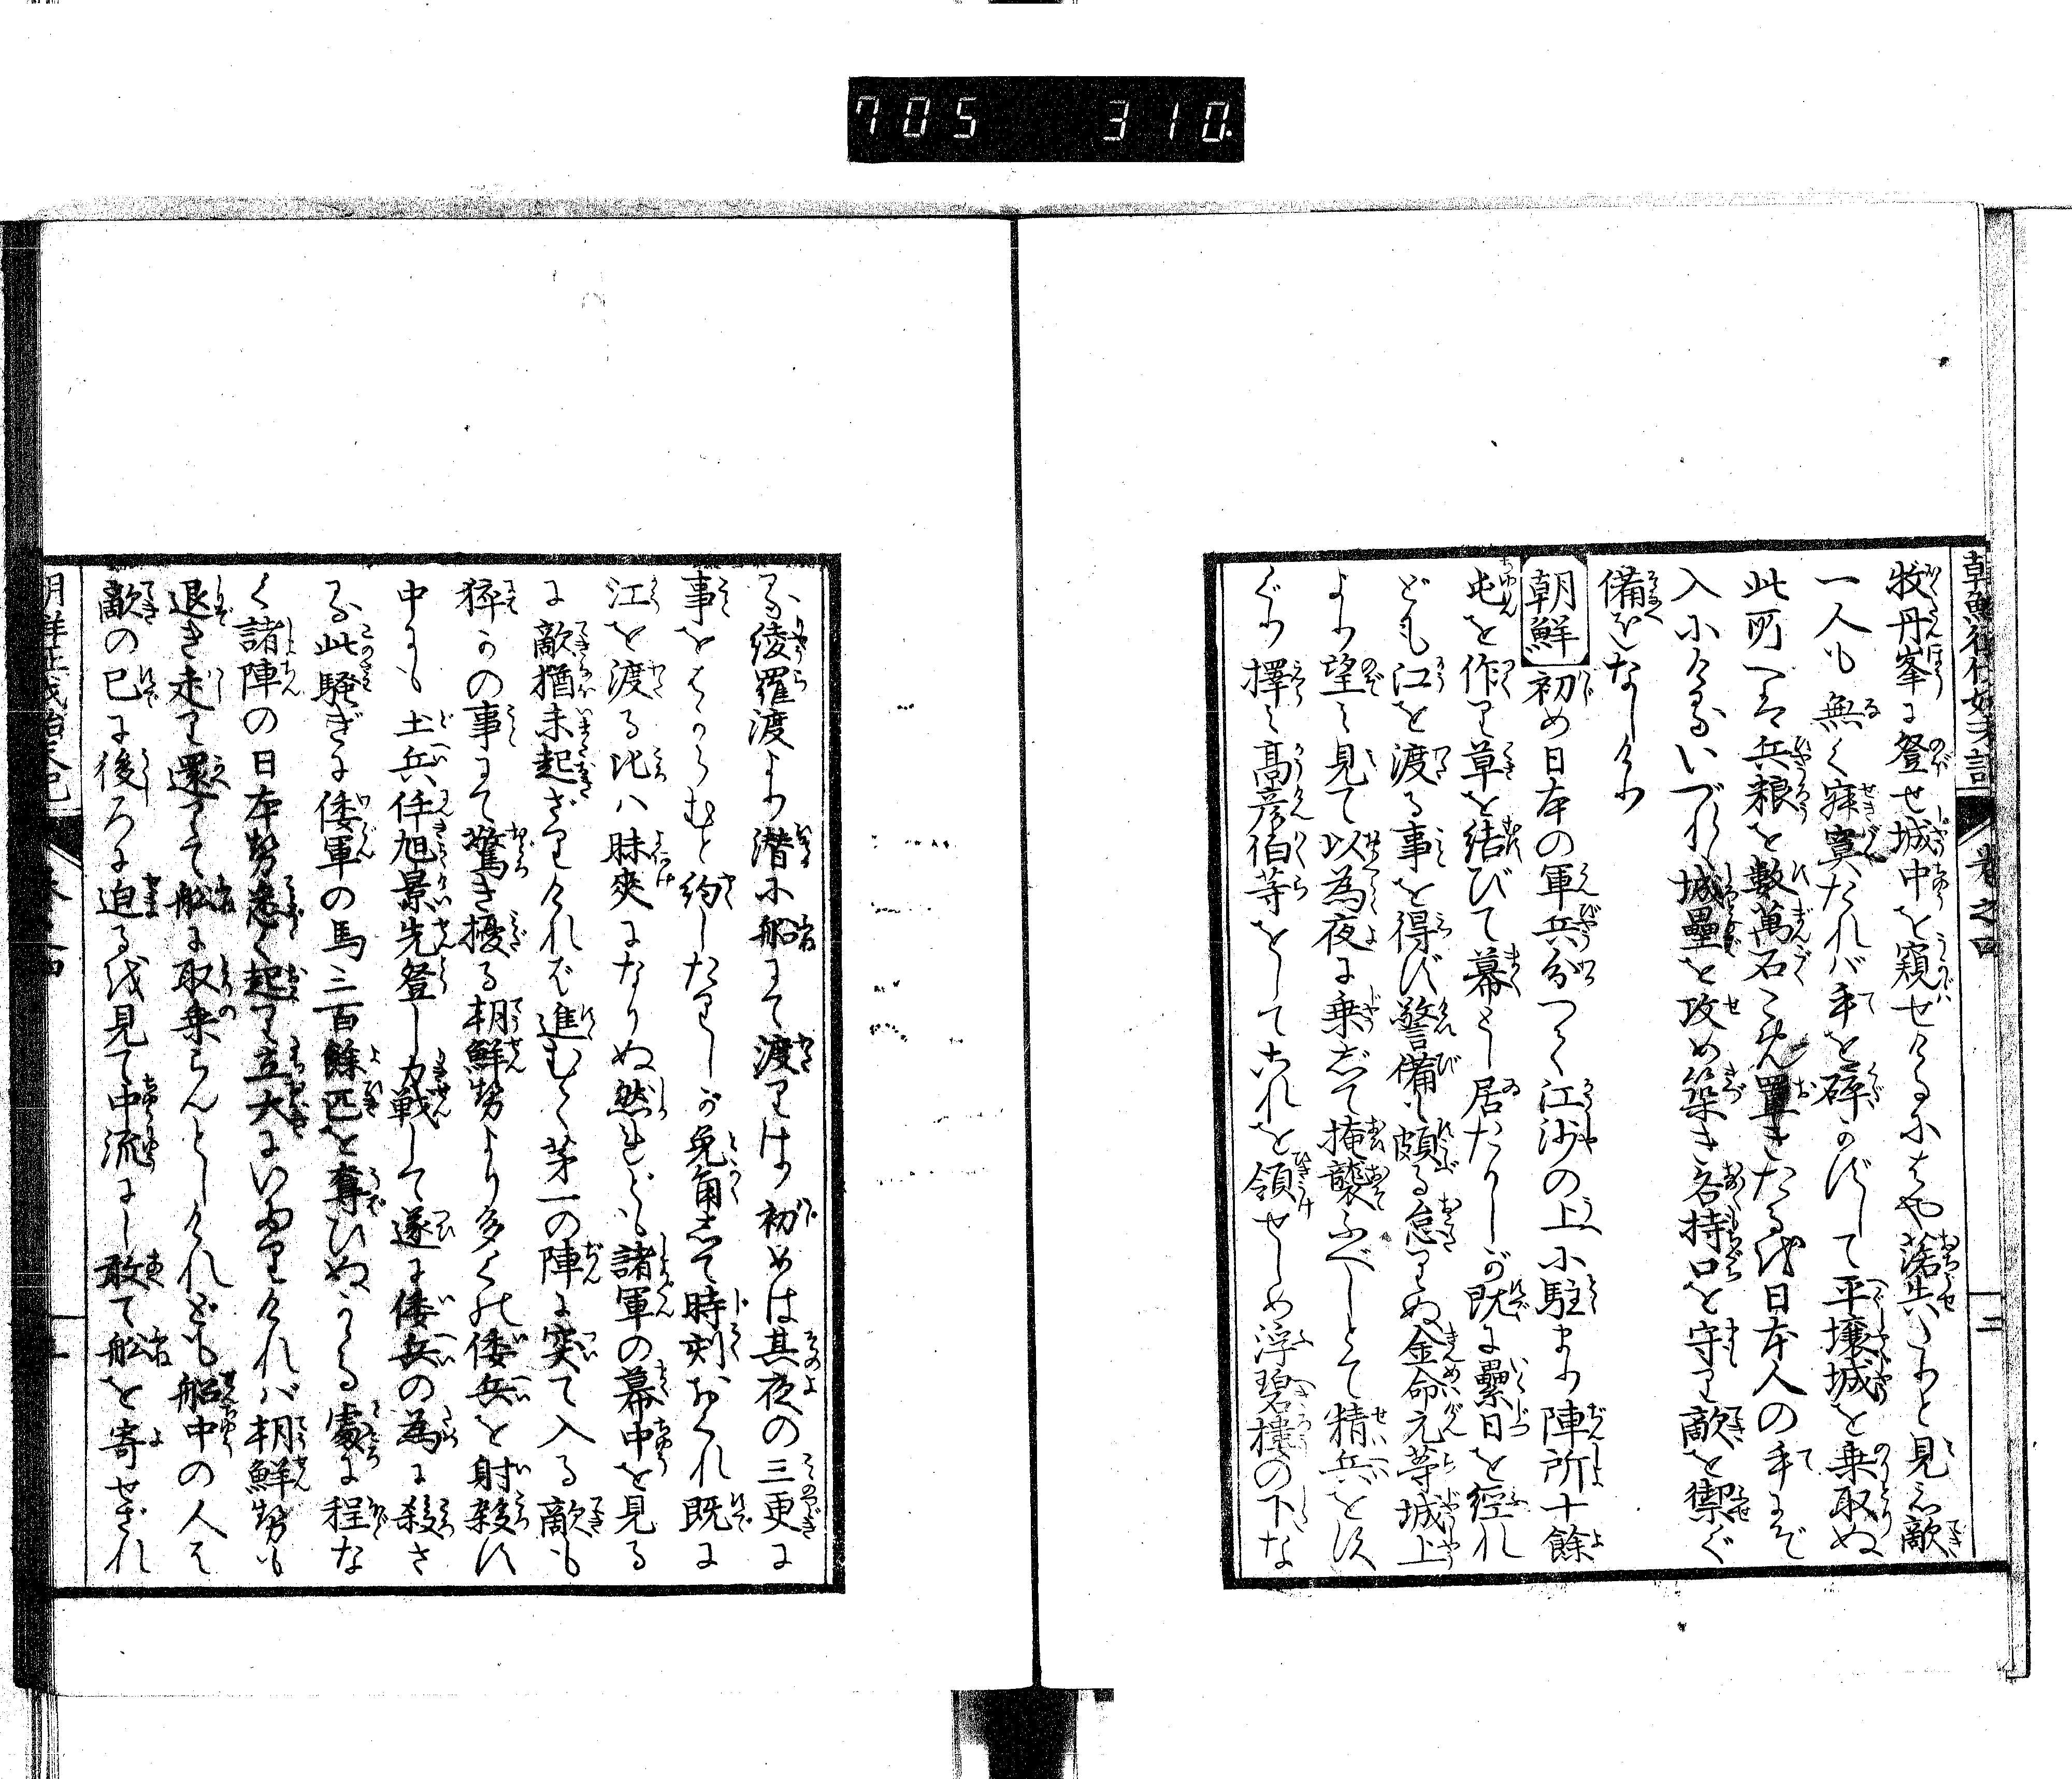 705 310.
朝鮮征伐始末記 卷之四 二
牧丹峯に登せ城中を窺せけるにはや落失たりと見え敵
一人も無く寂寞たれバ手を碎かずして平壌城を乗取ぬ
此所へは兵粮を數萬石こめ置きたる故日本人の手にぞ
入にけるいづれ城壘を攻め築き各持口を守り敵を禦ぐ
備をなしけり
朝鮮 初め日本の軍兵分つて江沙の上に駐まり陣所十餘
屯を作り草を結びて幕とし居たりしが既に纍日を經れ
ども江を渡る事を得ず警備も頗る怠りぬ金命元等城上
より望み見て以為夜に乗じて掩襲ふべしとて精兵をえ
ぐり擇み高彦伯等をしてこれを領せしめ浮碧樓の下な
る綾羅渡より潜に船にて渡りけり初めは其夜の三更に
事をはからむと約したりしが兎角して時刻おくれ既に
江を渡る比ハ昧爽になりぬ然れども諸軍の幕中を見る
に敵猶未起ざりけれバ進むて第一の陣に突て入る敵も
猝かの事にて驚き擾る朝鮮勢より多くの倭兵を射殺す
中にも土兵任旭景先登し力戦して遂に倭兵の為に殺さ
る此騒ぎに倭軍の馬三百餘匹を奪ひぬかゝる處に程な
く諸陣の日本勢悉く起り立大にいかりけれバ朝鮮勢も
退き走り還りて舩に取乗らんとしけれども船中の人は
敵の已に後ろに迫る故見て中流にし敢て舩を寄せざれ